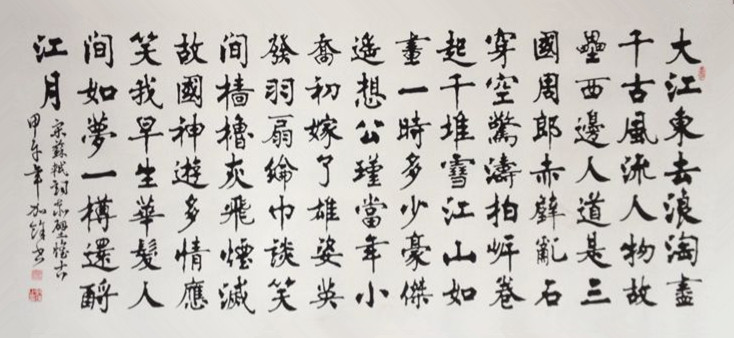 大江東去浪淘盡
千古風流人物故
壘西邊人道是三
國周郎赤壁亂石
穿空驚濤拍岸卷
起千堆雪江山如
畫一時多少豪傑
遙想公瑾當年小
喬初嫁了雄姿英
發羽扇綸巾談笑
間檣櫓灰飛煙滅
故國神遊多情應
笑我早生華髮人
間如夢一樽還酹
江月
宋蘇軾詞赤壁懷古
甲午年書